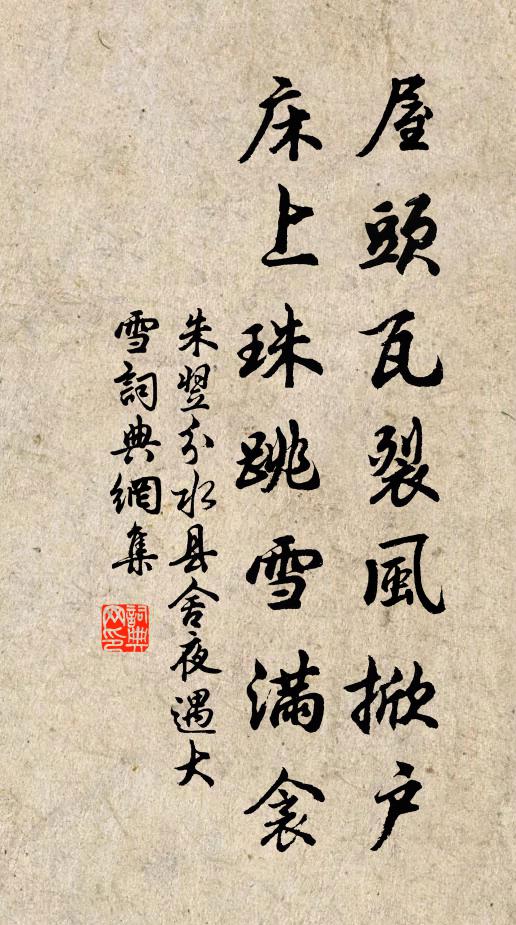 屋頭瓦裂風掀戶
床上珠跳雪滿衾
朱翌分水县舍夜遇大
雪詞典網集
詞典网印